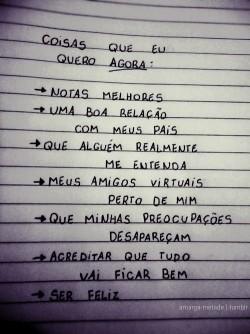 COISAS QUE EU
QUERO AGORA:
→ NOTAS MELHORES
→ UMA BOA RELAÇÃO
COM MEUS PAIS
→ QUE ALGUÉM REALMENTE
ME ENTENDA
→ MEUS AMIGOS VIRTUAIS
PERTO DE MIM
→ QUE MINHAS PREOCUPAÇÕES
DESAPAREÇAM
→ ACREDITAR QUE TUDO
VAI FICAR BEM
→ SER FELIZ
amarga-metade | tumblr